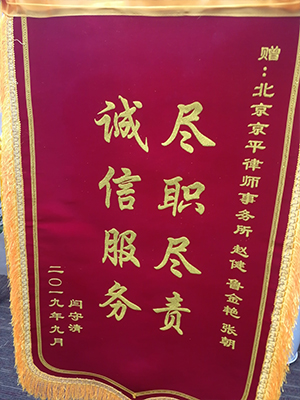 赠：北京京平律师事务所 赵健 鲁金艳 张朝
尽职尽责
诚信服务
闫守清
二〇一九年九月